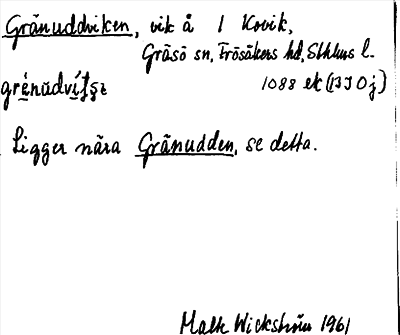 Gränuddviken, vik å 1 Kovik,
Gräsö sn, Frösåkers hd, Sthlms l.
1088 ek (13J0j)
Ligger nära Gränudden, se detta.
Wickström 1961